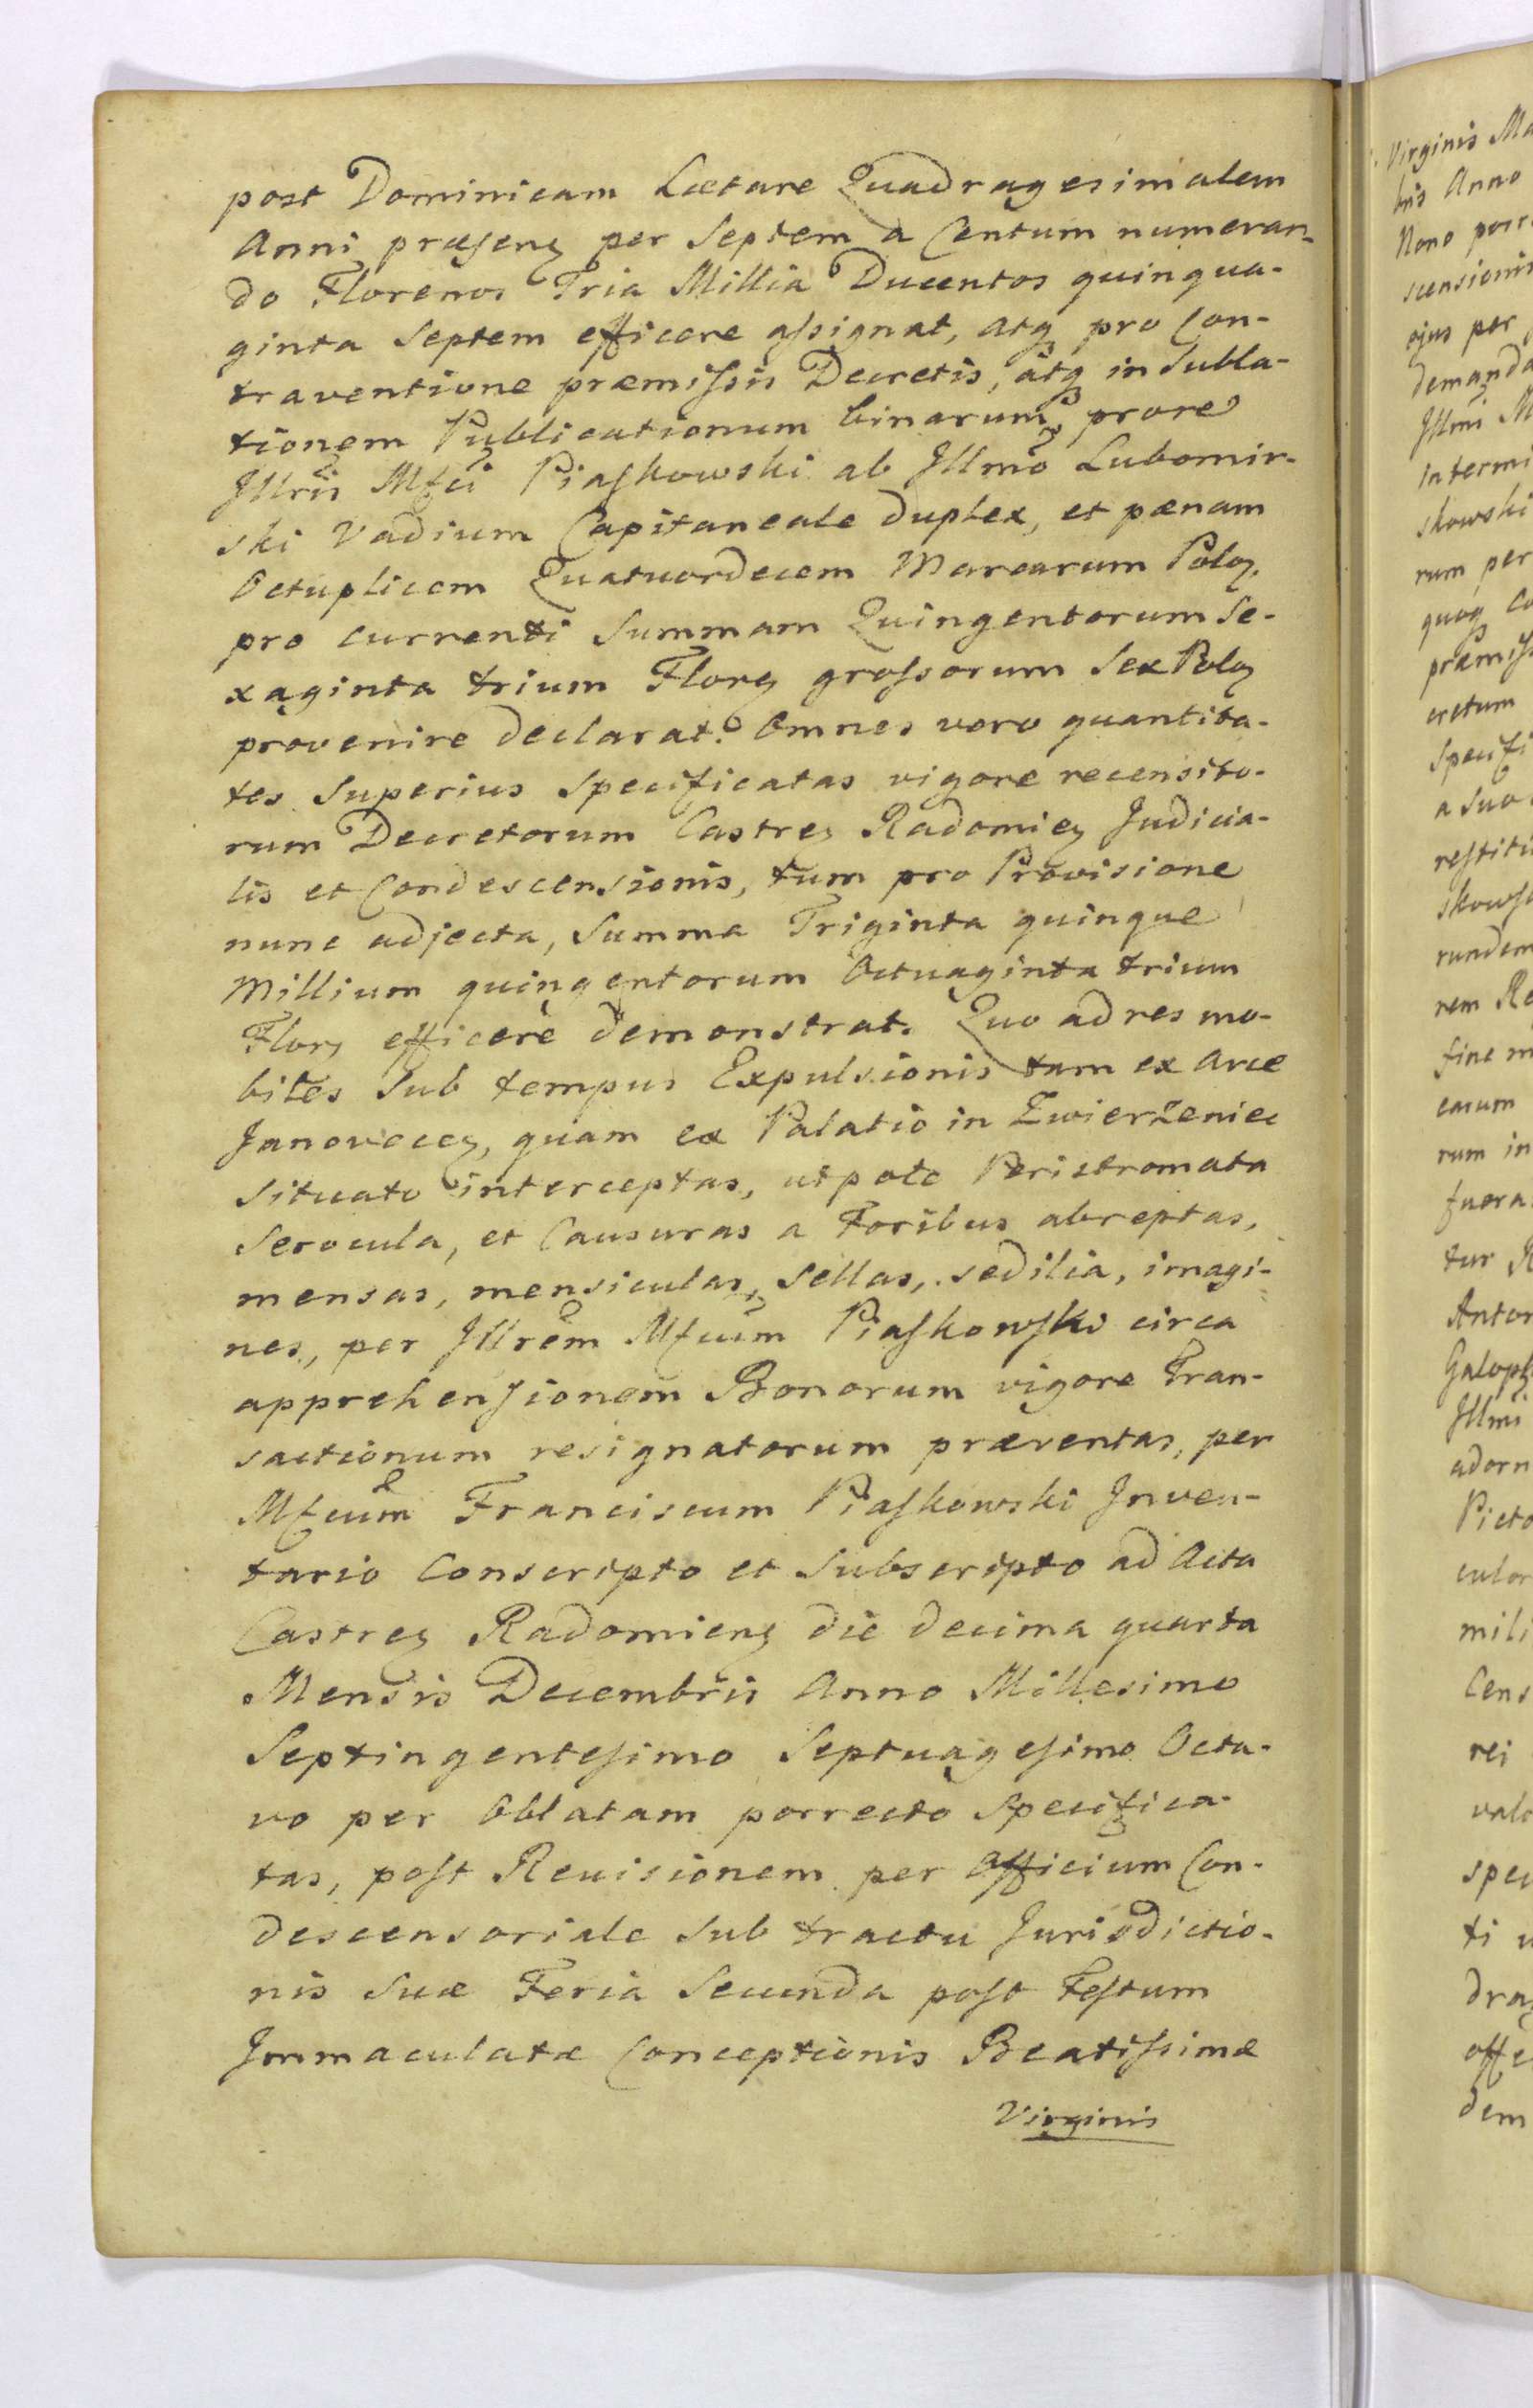 post Dominicam Lætare Quadragesimalem
Anni præsenꝫ per Septem a Centum numeran-
do Florenos Tria Millia Ducentos quinqua-
ginta Septem efficere assignat, atqꝫ pro Con-
traventione præmissis Decretis, atqꝫ in Subla-
tionem Publicationum binarum, pro re
Illris Mfci Piaskowski ab Illmo Lubomir-
ski Vadium Capitaneale duplex, et pænam
Octuplicem Quatuordecem Marcarum Poloꝫ.
pro currenti Summam Quingentorum Se-
xaginta trium Florꝫ grossorum Sex Poloꝫ
provenire declarat. Omnes vero quantita-
tes Superius Specificatas vigore recensito-
rum Decretorum Castreꝫ Radomieꝫ Judicia-
lis et Condescensionis, tum pro Provisione
nunc adjecta, Summa Triginta quinque
Millium quingentorum Octuaginta trium
Florꝫ efficere demonstrat. Quo ad res mo-
biles Sub tempus Expulsionis tam ex Arce
Janoveceꝫ, quam ex Palatio in Zwierzeniec
Situato interceptas, utpote Peristromata
Serocula, et Causuras a Foribus abreptas,
mensas, mensiculas, Sellas, sedilia, imagi-
nes, per Illrem Mfcum Piaskowski circa
apprehensionem Bonorum vigore Tran-
sactionum resignatorum præventas, per
Mfcum Franciscum Piaskowski Inven-
tario Conscripto et Subscripto ad Acta
Castreꝫ Radomienꝫ die decima quarta
Mensis Decembris Anno Millesimo
Septingentesimo Septuagesimo Octa-
vo per Oblatam porrecto Specifica-
tas, post Revisionem per Officium Con-
descensoriale Sub tractu Jurisdictio-
nis Suæ Feria Secunda post Festum
Immaculatæ Conceptionis Beatissimæ
Virginis
Virginis Ma
bris Anno
Nono porre
scensionis
ejus per
demanda
Illmi M
Intermi
skowski
rum per
quoqꝫ Co
præmiss
cretum
Specifi
a Suo
restitu
skows
rundem
rem Re
fine m
earum
rum in
fuera
tur R
Anton
Galoph
Illmi
adorn
Picto
culor
mili
Cens
rei
valo
spec
ti
dra
offe
dem